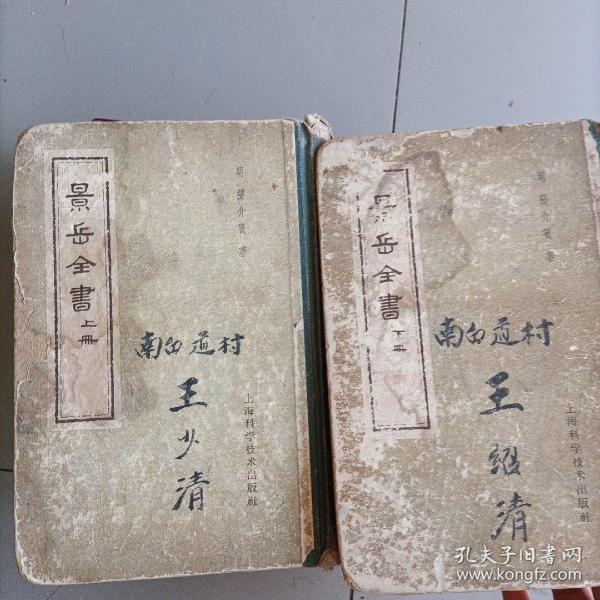 景岳全書上冊
明 張介賓 著
南白道村
王少清
上海科学技术出版社
景岳全書下冊
明 張介賓 著
南白道村
王紹清
上海科学技术出版社
孔夫子旧书网
www.kongfz.com